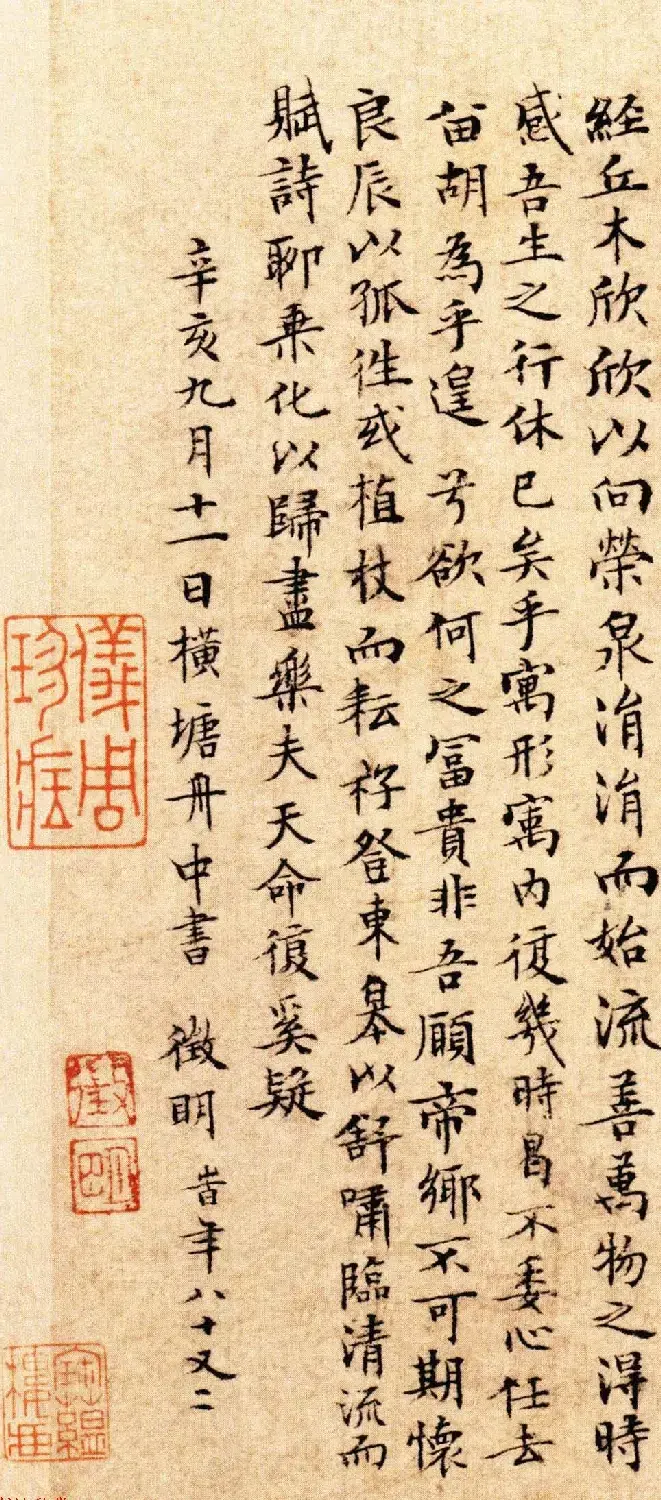 經丘木欣欣以向榮泉涓涓而始流善萬物之得時
感吾生之行休已矣乎寓形寓內復幾時曷不委心任去
留胡為乎遑 兮欲何之富貴非吾願帝鄉不可期懷
良辰以孤往或植杖而耘耔登東皋以舒嘯臨清流而
賦詩聊乘化以歸盡樂夫天命復奚疑
辛亥九月十一日橫塘舟中書 徵明 旹年八十又二
儀周
珍藏
徵
明